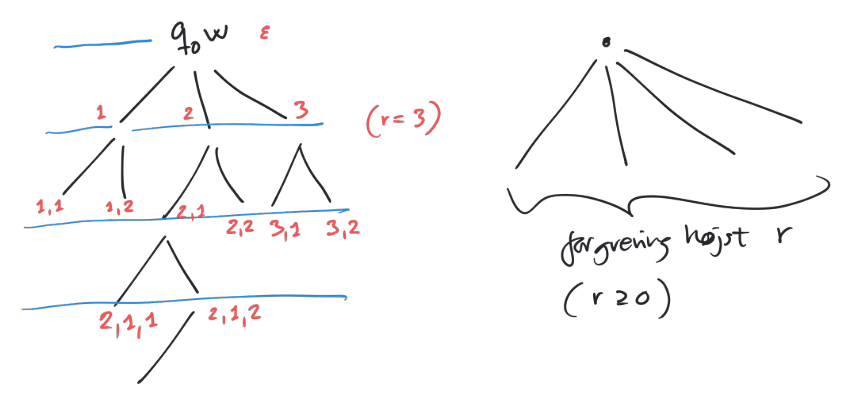 q₀w ε
1 2 3 (r=3)
1,1 1,2 2,1 2,2 3,1 3,2
2,1,1 2,1,2
forgrening højst r
(r ≥ 0)